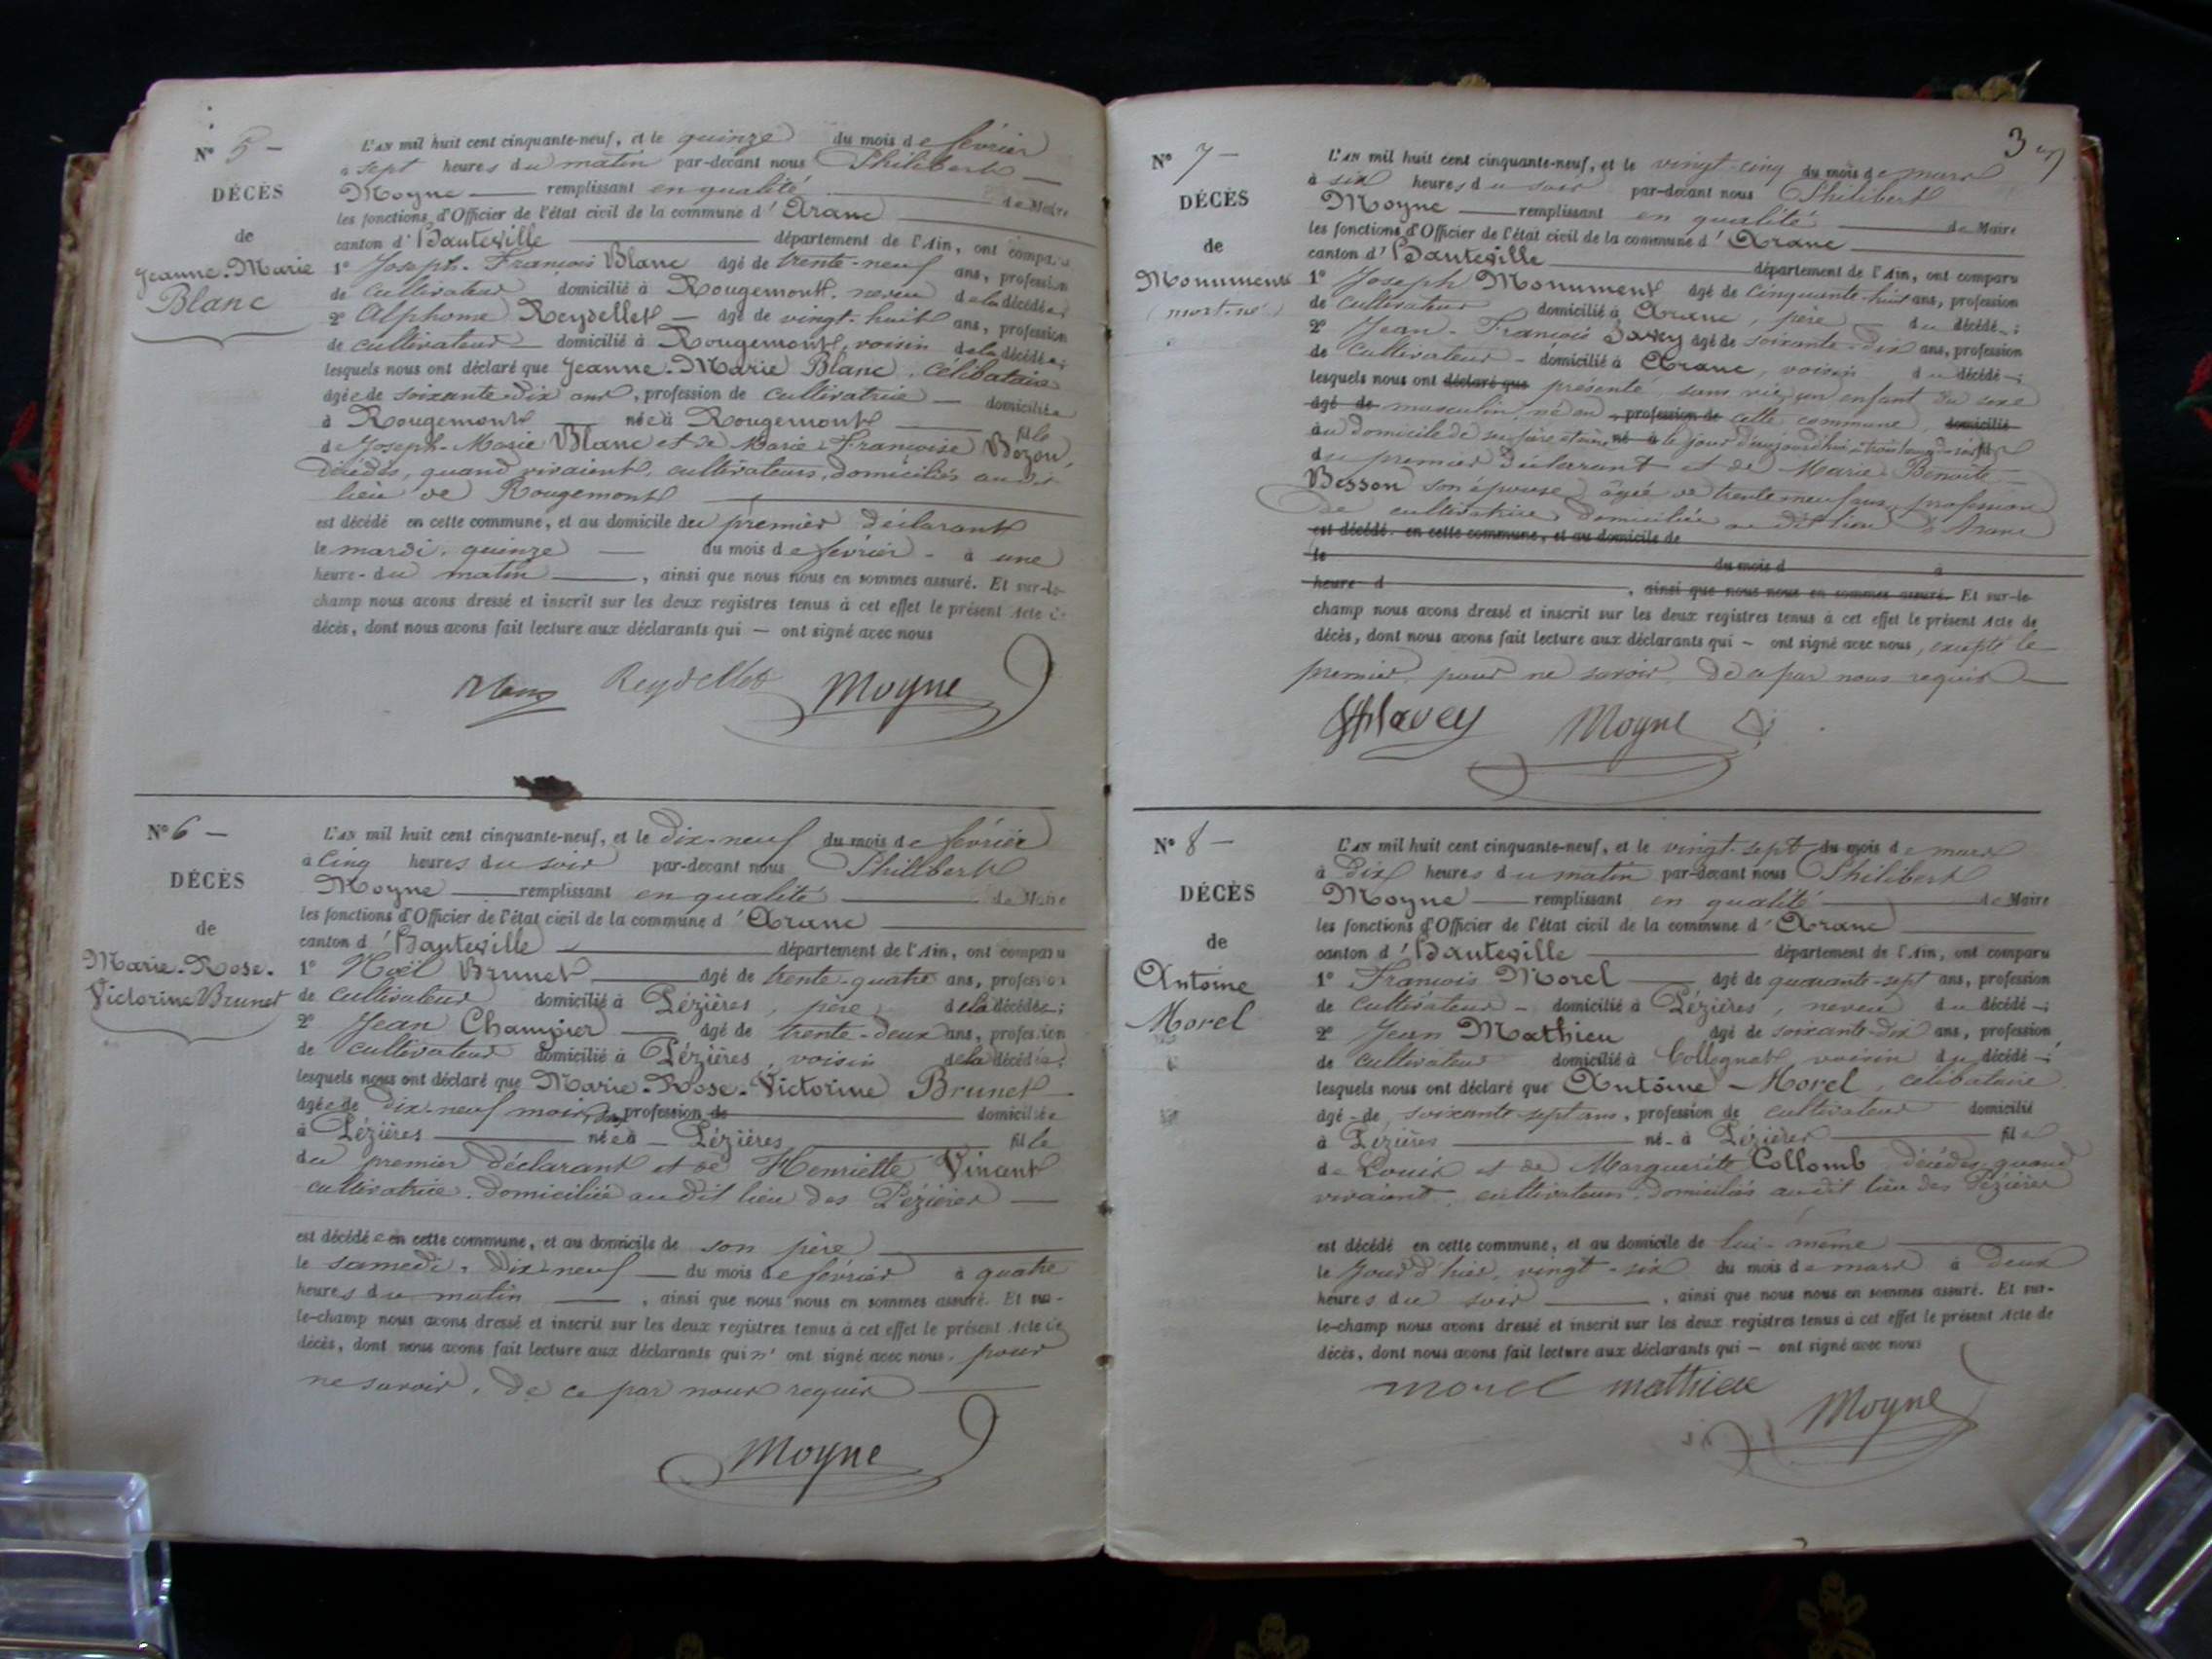 N° 5 —
DÉCÈS
de
Jeanne-Marie
Blanc
L'AN mil huit cent cinquante-neuf, et le quinze du mois de février
à sept heures du matin par-devant nous Philibert —
Moyne — remplissant en qualité — de Maire
les fonctions d'Officier de l'état civil de la commune d'Aranc
canton d'Hauteville — département de l'Ain, ont comparu
1° Joseph-François Blanc âgé de trente-neuf ans, profession
de cultivateur domicilié à Rougemont, neveu de la décédée;
2° Alphonse Reydellet — âgé de vingt-huit ans, profession
de cultivateur domicilié à Rougemont, voisin de la décédée;
lesquels nous ont déclaré que Jeanne-Marie Blanc, célibataire
âgée de soixante-dix ans, profession de cultivatrice — domiciliée
à Rougemont née à Rougemont — fille
de Joseph-Marie Blanc et de Marie-Françoise Bozon,
décédés, quand vivaient, cultivateurs, domiciliés au dit
lieu de Rougemont —
est décédé en cette commune, et au domicile du premier déclarant
le mardi, quinze — du mois de février - à une
heure - du matin —, ainsi que nous nous en sommes assuré. Et sur-le-
champ nous avons dressé et inscrit sur les deux registres tenus à cet effet le présent Acte de
décès, dont nous avons fait lecture aux déclarants qui — ont signé avec nous
Blanc Reydellet Moyne
N° 6 —
DÉCÈS
de
Marie-Rose-
Victorine Brunet
L'AN mil huit cent cinquante-neuf, et le dix-neuf du mois de février
à cinq heures du soir par-devant nous Philibert
Moyne — remplissant en qualité — de Maire
les fonctions d'Officier de l'état civil de la commune d'Aranc —
canton d'Hauteville — département de l'Ain, ont comparu
1° Noël Brunet — âgé de trente-quatre ans, profession
de cultivateur domicilié à Pézières, père de la décédée;
2° Jean Champier — âgé de trente-deux ans, profession
de cultivateur domicilié à Pézières, voisin de la décédée;
lesquels nous ont déclaré que Marie-Rose-Victorine Brunet —
âgée de dix-neuf mois profession de — domiciliée
à Pézières — née à — Pézières — fille
du premier déclarant et de Henriette Vincent
cultivatrice, domiciliée au dit lieu des Pézières —
est décédée en cette commune, et au domicile de son père —
le samedi, dix-neuf — du mois de février à quatre
heures du matin —, ainsi que nous nous en sommes assuré. Et sur-
le-champ nous avons dressé et inscrit sur les deux registres tenus à cet effet le présent Acte de
décès, dont nous avons fait lecture aux déclarants qui n'ont signé avec nous, pour
ne savoir, de ce par nous requis —
Moyne
3
N° 7 —
DÉCÈS
de
Monument
(mort-né)
L'AN mil huit cent cinquante-neuf, et le vingt-cinq du mois de mars
à six heures du soir par-devant nous Philibert
Moyne — remplissant en qualité — de Maire
les fonctions d'Officier de l'état civil de la commune d'Aranc —
canton d'Hauteville — département de l'Ain, ont comparu
1° Joseph Monument âgé de cinquante-huit ans, profession
de cultivateur domicilié à Aranc, père du décédé;
2° Jean-François Savey âgé de soixante-dix ans, profession
de cultivateur - domicilié à Aranc, voisin du décédé;
lesquels nous ont déclaré que présenté, sans vie, un enfant du sexe
âgé de masculin, né en, profession de cette commune, domicilié
au domicile de ses père et mère né à le jour d'aujourd'hui à trois heures du soir fils
du premier déclarant et de Marie-Benoite
Besson son épouse, âgée de trente neuf ans, profession
de cultivatrice, domiciliée au dit lieu d'Aranc
est décédé en cette commune, et au domicile de
le du mois d à
heure d , ainsi que nous nous en sommes assuré. Et sur-le-
champ nous avons dressé et inscrit sur les deux registres tenus à cet effet le présent Acte de
décès, dont nous avons fait lecture aux déclarants qui — ont signé avec nous, excepté le
premier, pour ne savoir, de ce par nous requis —
Moyne
N° 8 —
DÉCÈS
de
Antoine
Morel
L'AN mil huit cent cinquante-neuf, et le vingt-sept du mois de mars
à dix heures du matin par-devant nous Philibert
Moyne — remplissant en qualité — de Maire
les fonctions d'Officier de l'état civil de la commune d'Aranc —
canton d'Hauteville — département de l'Ain, ont comparu
1° François Morel — âgé de quarante-sept ans, profession
de cultivateur - domicilié à Pézières, neveu du décédé —;
2° Jean Mathieu âgé de soixante-dix ans, profession
de cultivateur domicilié à Collognat, voisin du décédé —;
lesquels nous ont déclaré que Antoine Morel, célibataire
âgé - de soixante-sept ans, profession de cultivateur domicilié
à Pézières — né - à Pézières — fils
de Louis et de Marguerite Collomb, décédés, quand
vivaient, cultivateurs, domiciliés au dit lieu des Pézières
est décédé en cette commune, et au domicile de lui-même —
le jour d'hier, vingt-six du mois de mars à deux
heures du soir —, ainsi que nous nous en sommes assuré. Et sur-
le-champ nous avons dressé et inscrit sur les deux registres tenus à cet effet le présent Acte de
décès, dont nous avons fait lecture aux déclarants qui — ont signé avec nous
morel mathieu
Moyne